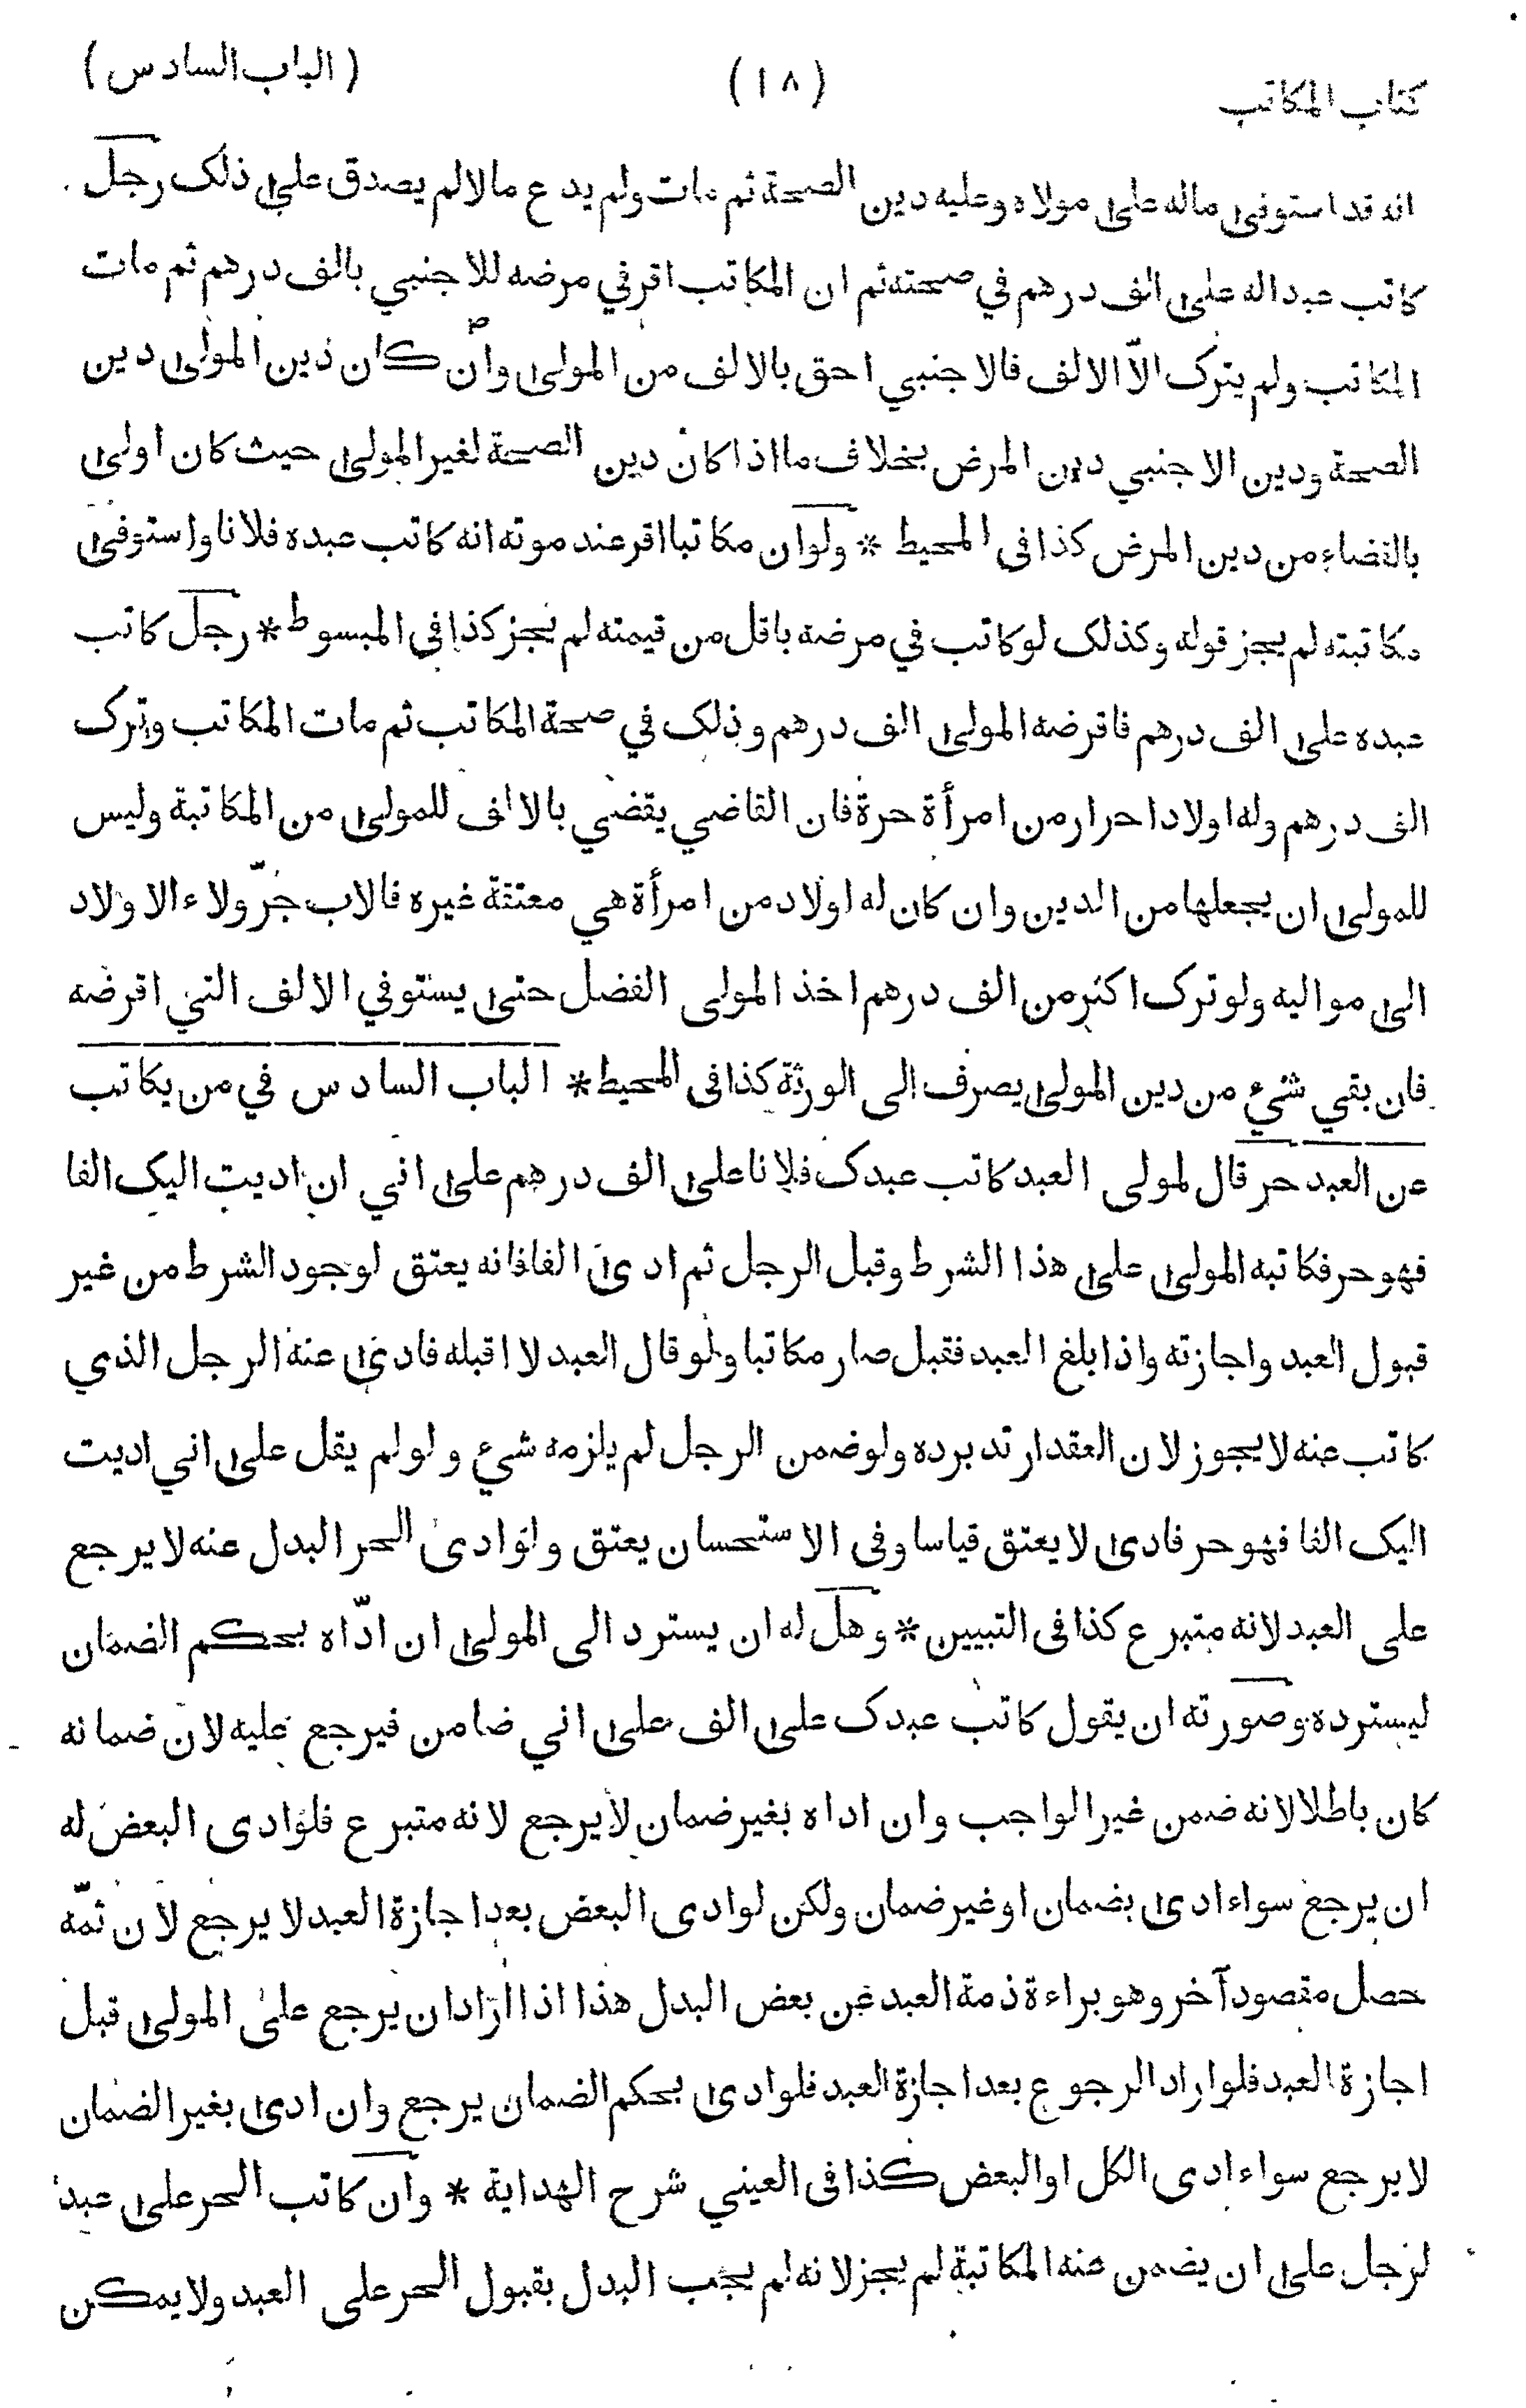 كتاب المكاتب (١٨) (الباب السادس)
انه قد استوفى ماله على مولاه وعليه دين الصحة ثم مات ولم يدع مالا لم يصدق على ذلك رجل
كاتب عبدا له على الف درهم في صحته ثم ان المكاتب اقر في مرضه للاجنبي بالف درهم ثم مات
المكاتب ولم يترك الّا الالف فالاجنبي احق بالالف من المولى وان كان دين المولى دين
الصحة ودين الاجنبي دين المرض بخلاف ما اذا كان دين الصحة لغير المولى حيث كان اولى
بالقضاء من دين المرض كذا فى المحيط * ولو ان مكاتبا اقر عند موته انه كاتب عبده فلانا واستوفى
مكاتبته لم يجز قوله وكذلك لو كاتب في مرضه باقل من قيمته لم يجز كذا فى المبسوط * رجل كاتب
عبده على الف درهم فاقرضه المولى الف درهم وذلك في صحة المكاتب ثم مات المكاتب وترك
الف درهم وله اولاد احرار من امرأة حرة فان القاضي يقضي بالالف للمولى من المكاتبة وليس
للمولى ان يجعلها من الدين وان كان له اولاد من امرأة هي معتقة غيره فالاب جرّ ولاء الاولاد
الى مواليه ولو ترك اكثر من الف درهم اخذ المولى الفضل حتى يستوفي الالف التي اقرضه
فان بقي شيء من دين المولى يصرف الى الورثة كذا فى المحيط * الباب السادس في من يكاتب
عن العبد حر قال لمولى العبد كاتب عبدك فلانا على الف درهم على اني ان اديت اليك الفا
فهو حر فكاتبه المولى على هذا الشرط وقبل الرجل ثم ادى الفا فانه يعتق لوجود الشرط من غير
قبول العبد واجازته واذا بلغ العبد فقبل صار مكاتبا ولو قال العبد لا اقبله فادى عنه الرجل الذي
كاتب عنه لا يجوز لان العقد ارتد برده ولو ضمن الرجل لم يلزمه شيء ولو لم يقل على اني اديت
اليك الفا فهو حر فادى لا يعتق قياسا وفى الاستحسان يعتق ولو ادى الحر البدل عنه لا يرجع
على العبد لانه متبرع كذا فى التبيين * وهل له ان يسترد الى المولى ان ادّاه بحكم الضمان
ليسترده وصورته ان يقول كاتب عبدك على الف على اني ضامن فيرجع عليه لان ضمانه
كان باطلا لانه ضمن غير الواجب وان اداه بغير ضمان لا يرجع لانه متبرع فلو ادى البعض له
ان يرجع سواء ادى بضمان او غير ضمان ولكن لو ادى البعض بعد اجازة العبد لا يرجع لان ثمّه
حصل مقصود آخر وهو براءة ذمة العبد عن بعض البدل هذا اذا اراد ان يرجع على المولى قبل
اجازة العبد فلو اراد الرجوع بعد اجازة العبد فلو ادى بحكم الضمان يرجع وان ادى بغير الضمان
لا يرجع سواء ادى الكل او البعض كذا فى العيني شرح الهداية * وان كاتب الحر على عبد
لرجل على ان يضمن عنه المكاتبة لم يجز لانه لم يجب البدل بقبول الحر على العبد ولا يمكن